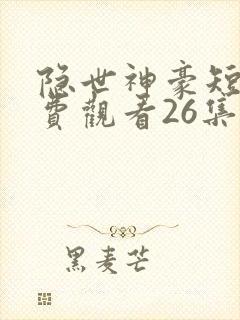 隐世神豪短
費觀看26集
黑麦芒